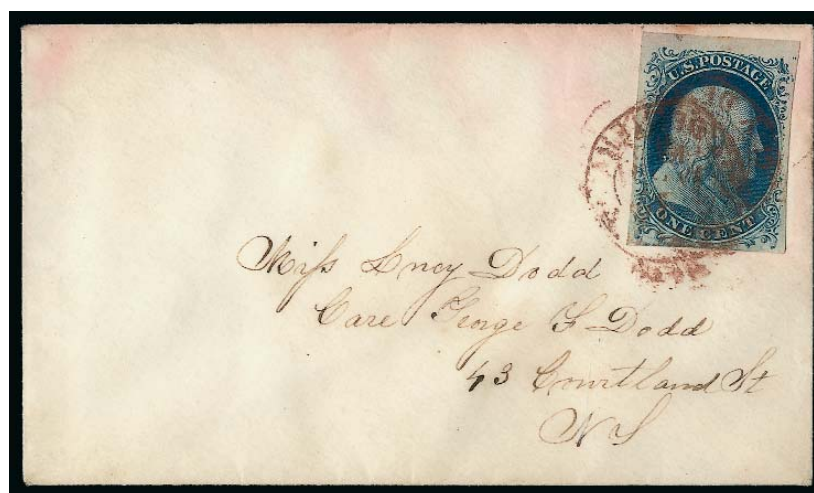 U.S. POSTAGE
ONE CENT
Miss Lucy Dodd
Care George S Dodd
43 Courtland St
NY